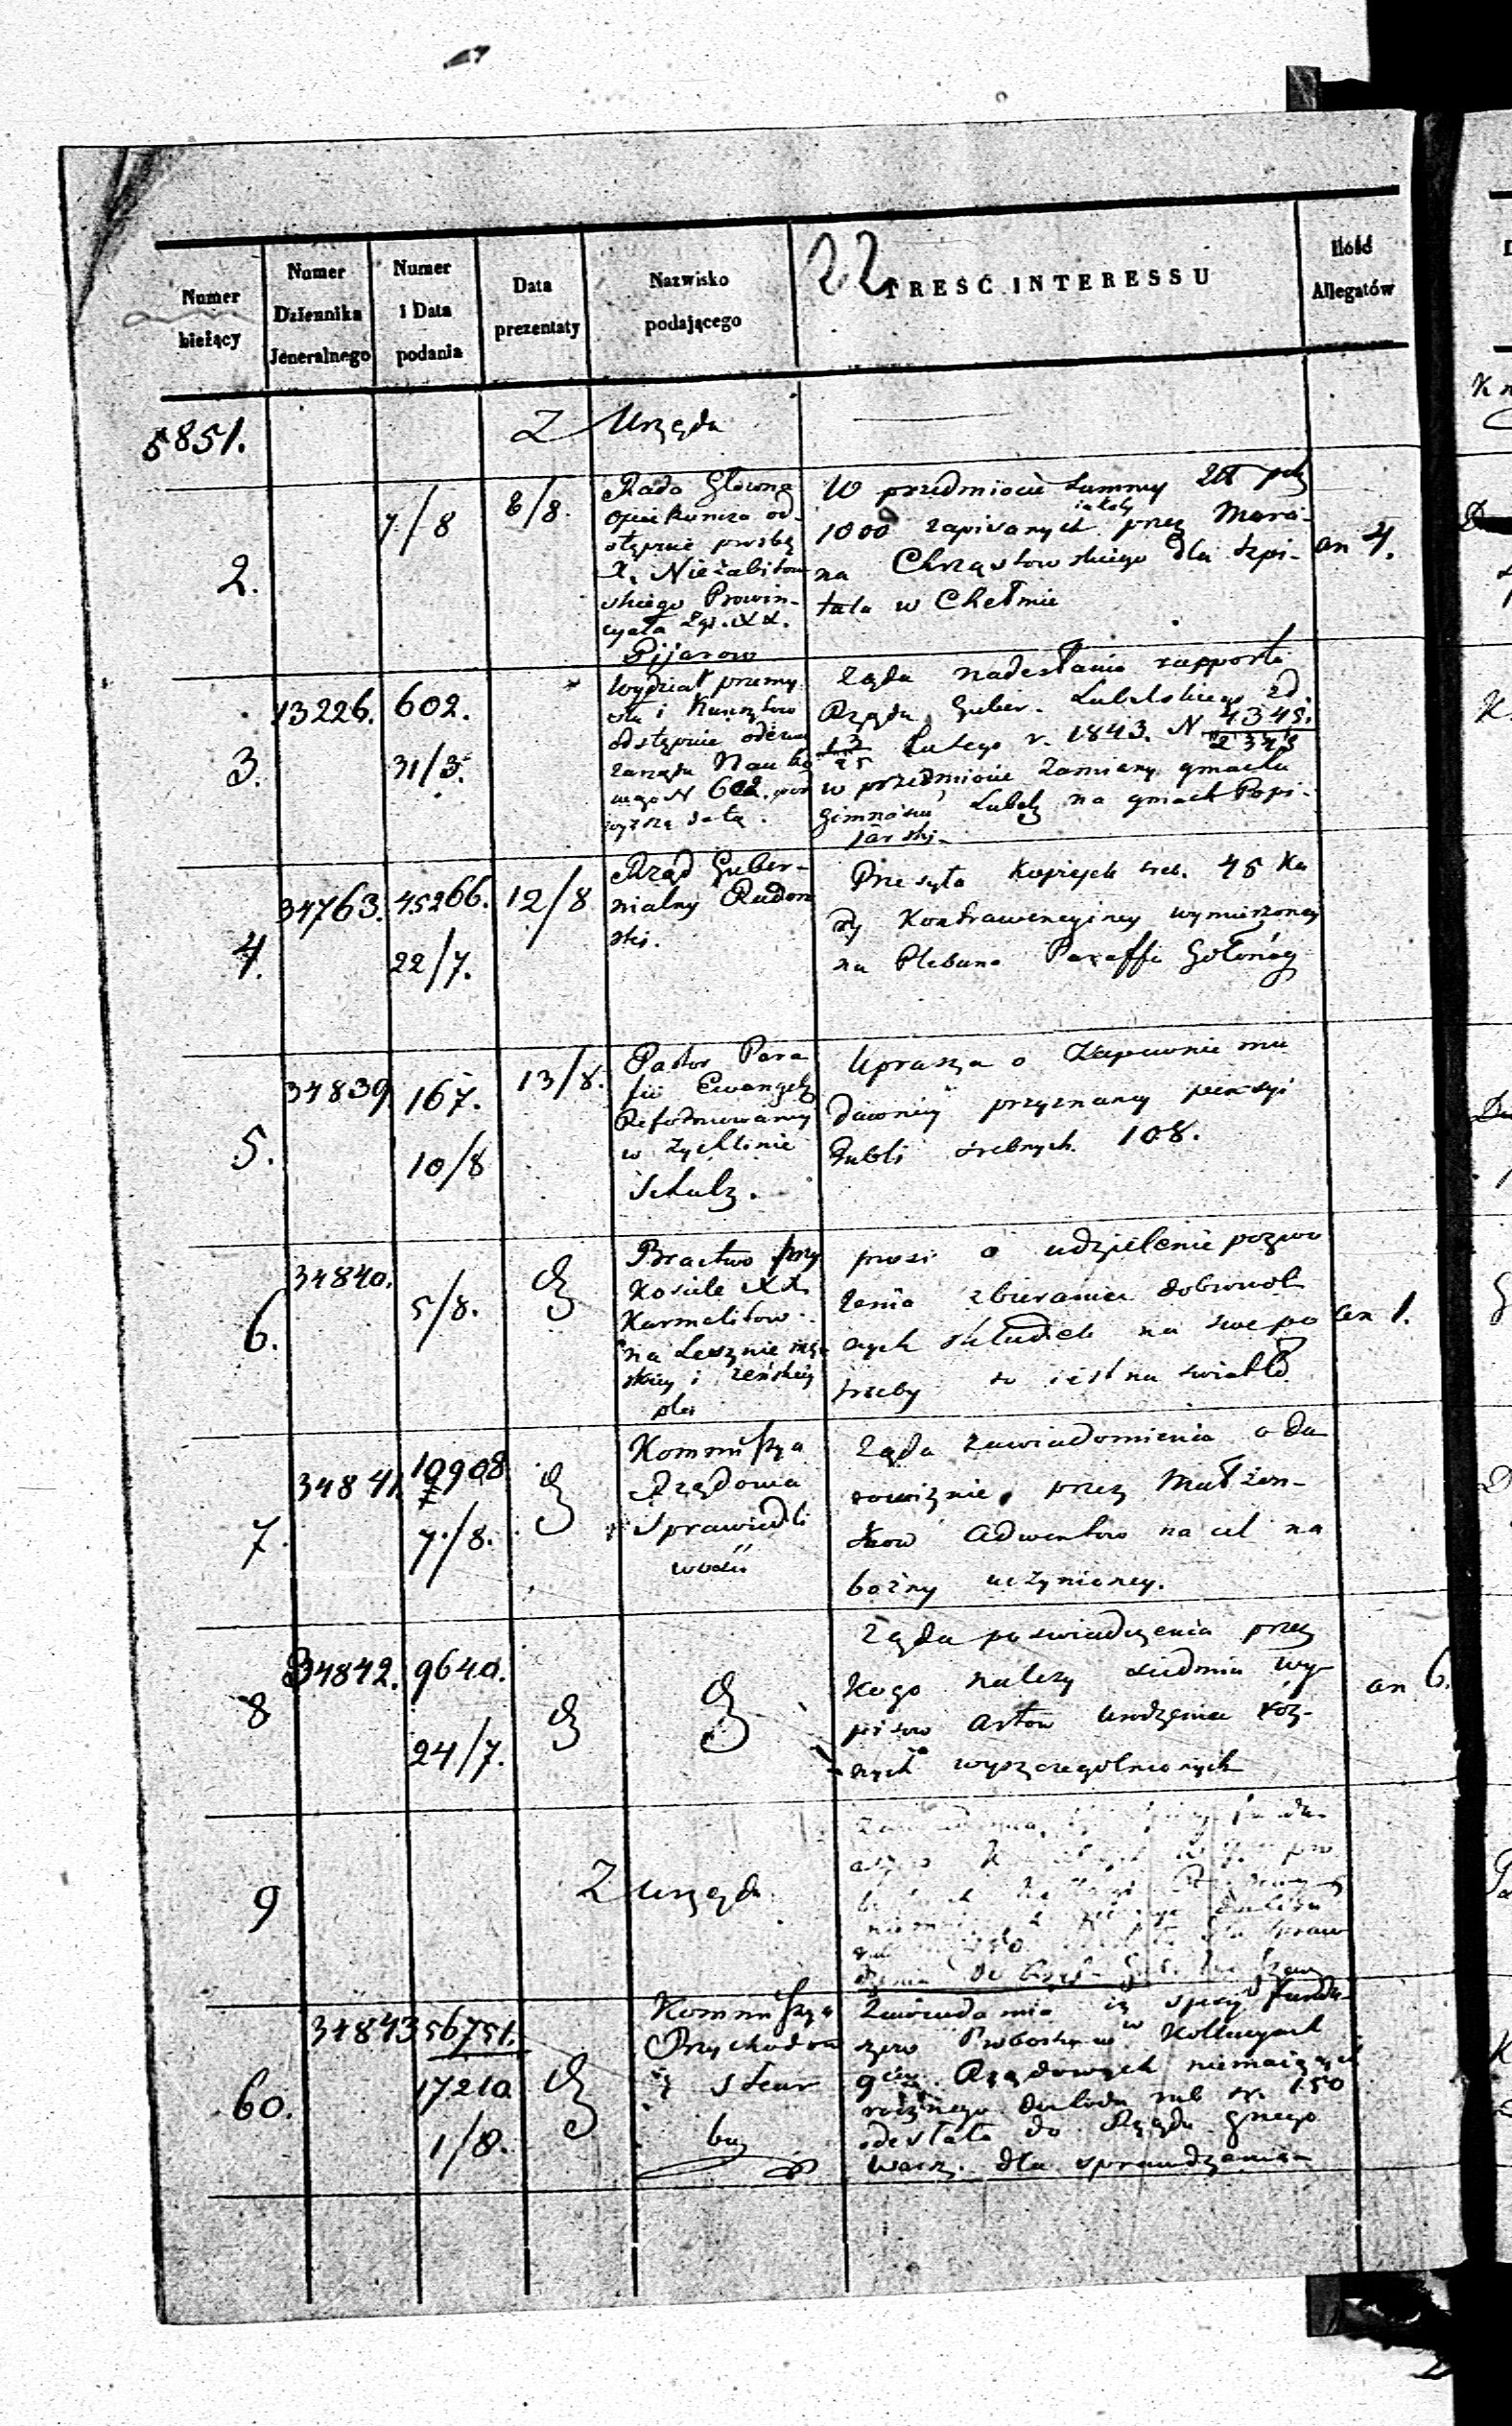 22
Numer bieżący
Numer Dziennika Jeneralnego
Numer i Data podania
Data prezentaty
Nazwisko podającego
TREŚĆ INTERESSU
Ilość Allegatów
5851.
Z Urzędu
2.
7/8
8/8.
Rada Główna
Opiekuńcza od-
stępuie prośbę
X. Nieżabitow
skiego Prowin-
cyała Zgr. XX.
Pijarow
W przedmiocie Summy Złt pols
1000 zapisanych przez Marci-
na Chrząstowskiego dla Szpi-
tala w Chełmie
an 4.
3.
13226.
602.
31/3.
Wydział przemy
słu i Kunsztow
odstępuie odezwę
Zarządu Nauko
wego N 602. pow
yższą datą.
Żąda nadesłania rapportu
Rządu Guber. Lubelskiego zd.
13/25 Lutego r. 1843. N 4345./2343
w przedmiocie Zamiany gmachu
Gimnazium Lubels na gmach Popi-
jarski.
4.
34763.
45266.
22/7.
12/8
Rząd Guber-
nialny Radom
ski.
Przesyła Kopiejek sreb. 45 Ka
ry Kontrawencyiney wymierzoney
na Plebana Paraffii Gołonóg
5.
34839
167.
10/8
13/8.
Pastor Para
fii Ewangels
Reformowaney
w Żychlinie
Schulz.
Uprasza o Zapewnie mu
dawniey przyznaney pensyi
Rubli srebrnych 108.
6.
34840.
5/8.
Bractwo przy
Kosciele XX
Karmelitow
na Lesznie męz
skiey i żeńskiey
płci
prosi o udzielenie pozwo
lenia zbierania dobrowol
nych składek na swe po
trzeby to iest na swiatło
an 1.
7.
34841.
10908
7/8.
Kommissya
Rządowa
Sprawiedli
wości
Żąda zawiadomienia o da
rowiznie, przez Małżon-
kow Adwentow na cel na
bożny uczynioney.
8
34842.
9640.
24/7.
Żąda poswiadczenia przez
Kogo nalezy siedmiu wy-
pisow Aktow Urodzenia róż-
nych wyszczegolnionych
an 6.
9
Z Urzędu
60.
34843
56751.
17210
1/8.
Kommissya
Przychodow
y Skar
bu
Zawiadamia iż spis fundu
szow Probostw w Kollacyach
Rządowych niemaiących
rocznego dochodu rub sr. 150
odesłała do Rządu Gnego
Warsz. dla sprawdzenia